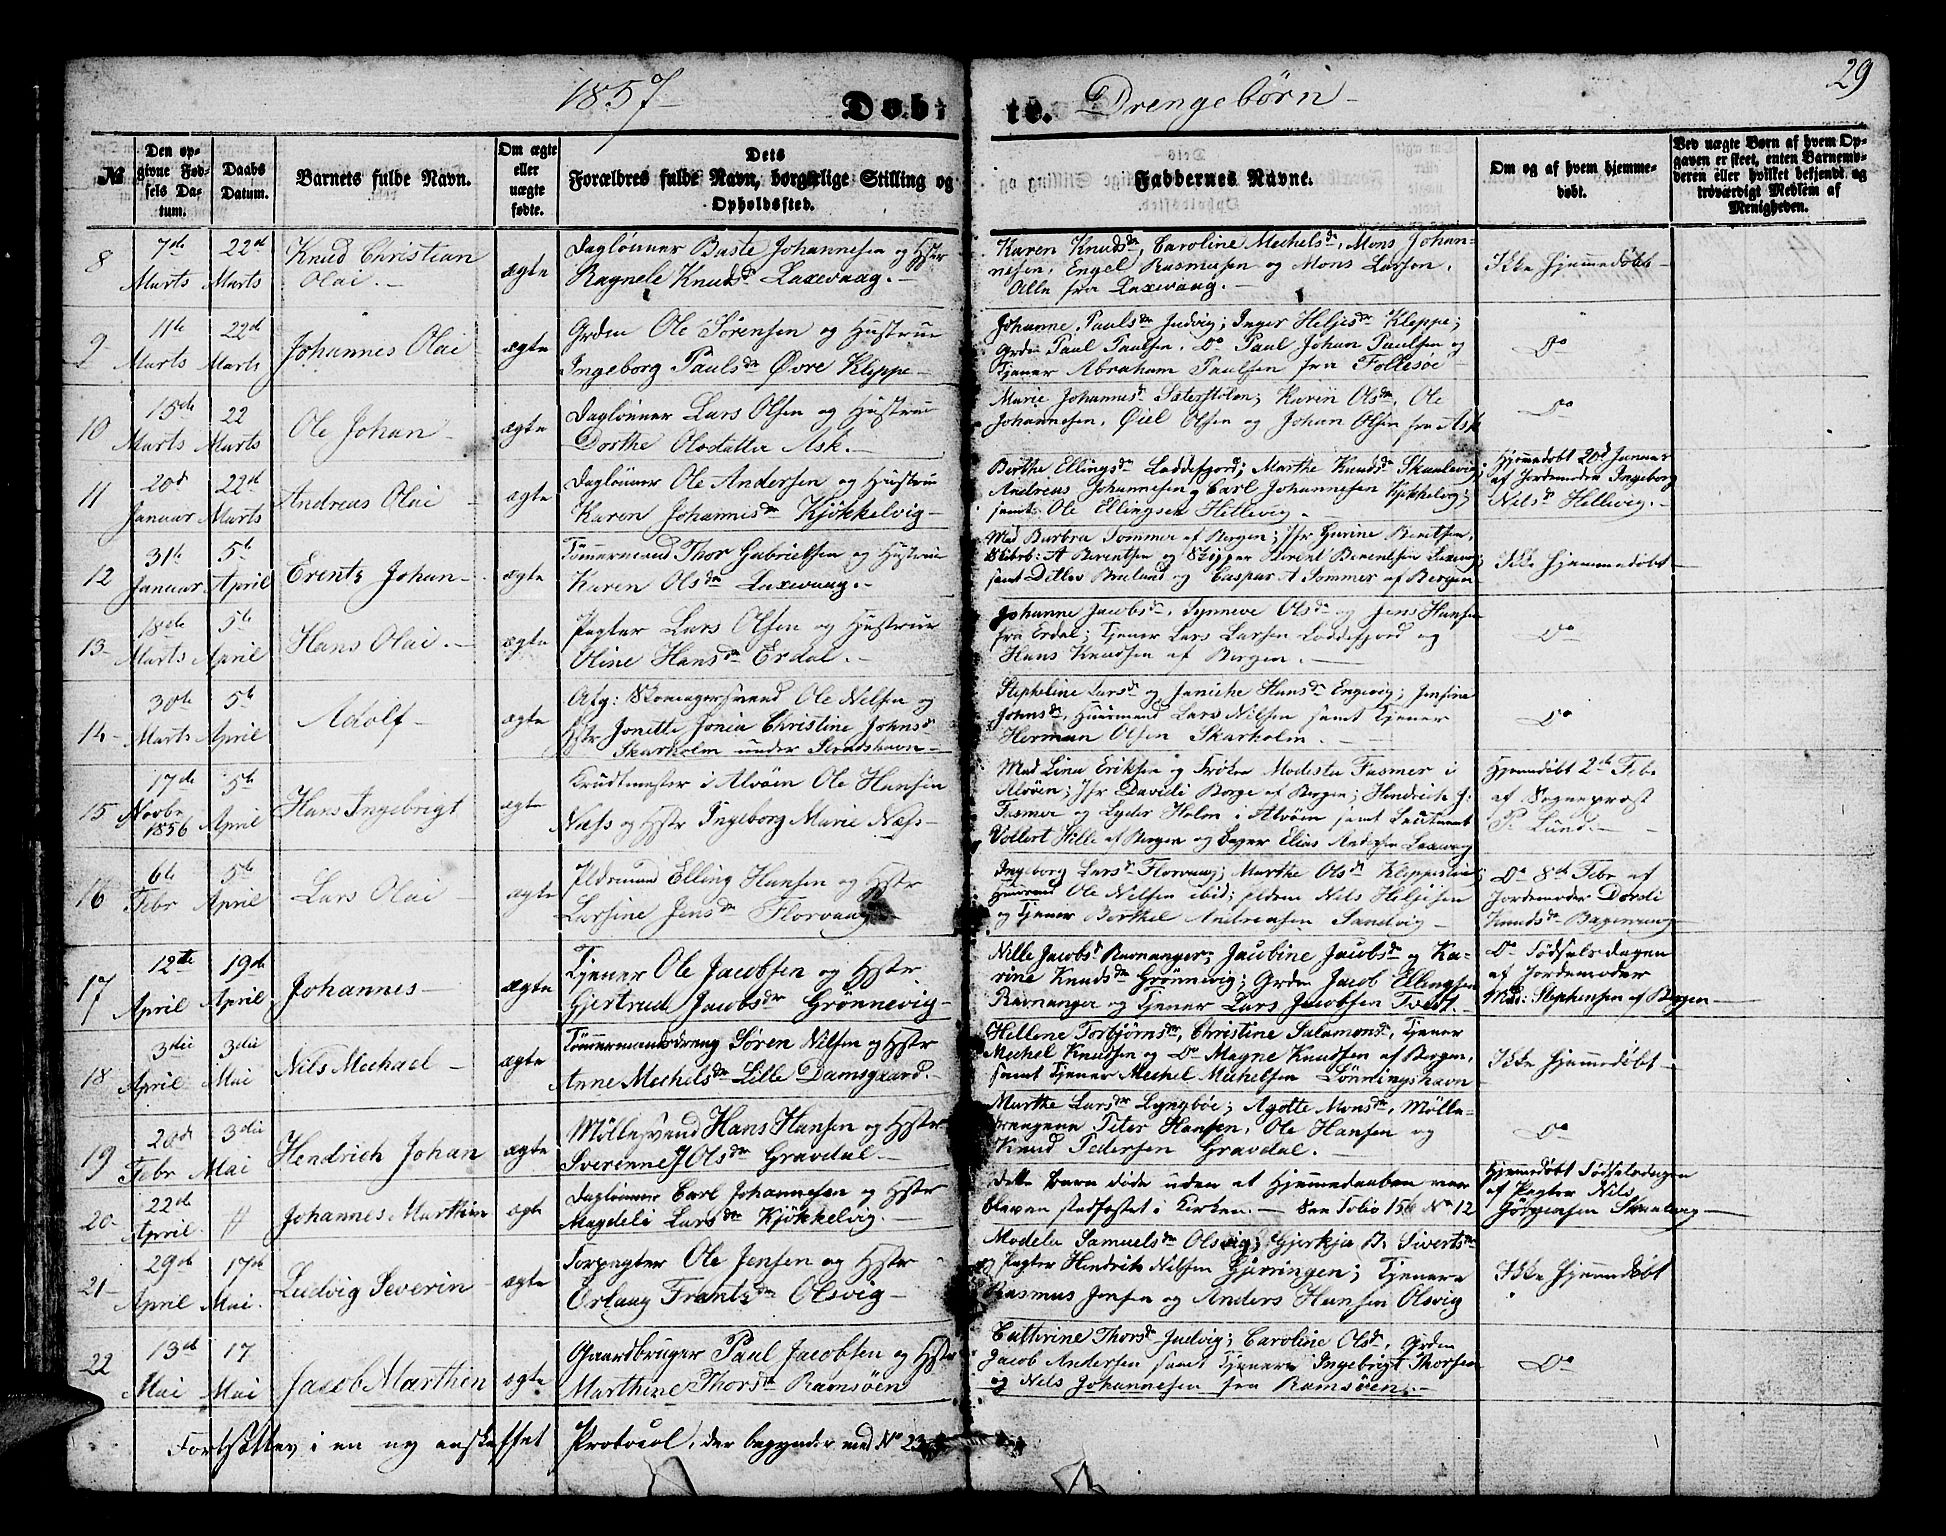 1857
Døb-
te.
Drengebørn
29
№
Den op-
givne Fød-
sels Da-
tum.
Daabs
Datum.
Barnets fulde Navn.
Om ægte
eller
uægte
fødte.
Dets
Forældres fulde Navn, borgerlige Stilling og
Opholdssted.
Faddernes Navne.
Om og af hvem hjemme-
døbt.
Ved uægte Børn af hvem Op-
gaven er skeet, enten Barnemo-
deren eller hvilket bekjendt og
troværdigt Medlem af
Menigheden.
8
7de
Marts
22de
Marts
Knud Christian
Olai.
ægte
Daglønner Baste Johannesen og Hstr
Ragnele Knudsdr Laxevaag.
Karen Knudsdr, Caroline Mechelsdr, Mons Johan-
nesen, Engel Rasmusen og Mons Larsen.
Alle fra Laxevaag.
Ikke hjemmedøbt
9
11te
Marts
22de
Marts
Johannes Olai
ægte
Grden Ole Sørensen og Hustrue
Ingeborg Paulsdr Øvre Kleppe
Johanne Paulsdr Judvig; Inger Heljesdr Kleppe;
Grdm Paul Paulsen, Do Paul Johan Paulsen og
Tjener Abraham Paulsen fra Follesøe
Do
10
15de
Marts
22
Marts
Ole Johan
ægte
Daglønner Lars Olsen og Hustrue
Dorthe Olsdatter Ask.
Marie Johannesdr Sæterstølen; Karen Olsdr, Ole
Johannesen, Øiel Olsen og Johan Olsen fra Ask
Do
11
20de
Januar
22de
Marts
Andreas Olai
ægte
Daglønner Ole Andersen og Hustrue
Karen Johannesdr Kjøkkelvig
Berthe Ellingsdr Loddefjord; Marthe Knudsdr Skaalevig;
Andreas Johannesen og Carl Johannesen Kjøkkelvig;
samt Ole Ellingsen Hillevig.
Hjemmedøbt 20de Januar
af Jordemoder Ingeborg
Nilsdr Hillevig.
12
31te
Januar
5te
April
Erentz Johan
ægte
Tømmermand Thor Gabrielsen og Hustrue
Karen Olsdr Laxevaag.
Mad Barbra Sommer af Bergen; Jfr Gurine Berntsen,
Skibsb: A Berentsen og Skipper Berent Berentsen Laxevaag
samt Ditlev Breland og Caspar A Sommer af Bergen
Ikke hjemmedøbt
13
18de
Marts
5te
April
Hans Olai.
ægte
Pagter Lars Olsen og Hustrue
Oline Hansdr Erdal.
Johanne Jacobsdr, Synneve Olsdr og Jens Hansen
fra Erdal; Tjener Lars Larsen Loddefjord og
Hans Knudsen af Bergen.
Do
14
30te
Marts
5te
April
Adolf
ægte
Afg: Skomagersvend Ole Nilsen og
Hstr Jonette Jonia Christine Johnsdr
Skarholm under Strudshavn
Stepheline Larsdr og Janiche Hansdr Engevig; Jensine
Johnsdr, Huusmand Lars Nilsen samt Tjener
Herman Olsen Skarholm.
Do
15
17de
Novbr
1856
5te
April
Hans Ingebrigt
ægte
Krudtmester i Alvøen Ole Hansen
Næss og Hstr Ingeborg Marie Næss
Mad Lina Eriksen og Frøken Modesta Fasmer i
Alvøen; Jfr Davidi Borge af Bergen; Hendrich J:
Fasmer og Lyder Holm i Alvøen samt Lieutnant
Vollert Hille af Bergen og Bager Elias Andersen Laxevaag
Hjemdøbt 2de Febr
af Sognepræst
P. Lund.
16
6te
Febr
5te
April
Lars Olai
ægte
Pldsmand Elling Hansen og Hstr
Larsine Jensdr Florvaag
Ingeborg Larsdr Florvaag; Marthe Olsdr Kleppestøe;
Huusmd Ole Nilsen ibid; Pldsm Nils Heljesen
og Tjener Berthel Andreasen Sandvig
Do 8de Febr af
Jordemoder Dordi
Knudsdr
17
12te
April
19de
April
Johannes
ægte
Tjener Ole Jacobsen og Hstr
Gjertrud Jacobsdr Grønnevig
Nille Jacobsdr Ravnanger; Jacobine Jacobsdr og Ka-
rine Knudsdr Grønnevig; Grden Jacob Ellingsen
Ravnanger og Tjener Lars Jacobsen Tvedt.
Do Fødselsdagen
af Jordemoder
Mad: Stephensen af Bergen
18
3die
April
3die
Mai
Nils Mechael
ægte
Tømmermandsdreng Søren Nilsen og Hstr
Anne Mechelsdr Lille Damsgaard.
Hellene Torbjørnsdr, Christine Salamonsdr, Tjener
Mechel Knudsen og Do Magne Knudsen af Bergen,
samt Tjener Mechel Michelsen Lønningshavn
Ikke Hjemmedøbt
19
20de
Febr
3die
Mai
Hendrich Johan
ægte
Møllesvend Hans Hansen og Hstr
Sverenne J Olsdr Gravdal.
Marthe Larsdr Lyngbøe; Agotte Monsdr, Mølle-
drengene Peter Hansen, Ole Hansen og
Knud Pedersen Gravdal.
Do
20
22de
April
"
Johannes Marthin
ægte
Daglønner Carl Johannesen og Hstr
Magdeli Larsdr Kjøkkelvig.
Dette Barn døde uden at Hjemmedaaben var
bleven stadfæstet i Kirken. See Folio 156 No 12
Hjemmedøbt Fødselsdagen
af Pagter Nils
Jørgensen Skaalevig
21
29de
April
17de
Mai.
Ludvig Severin
ægte
Forpagter Ole Jensen og Hstr
Orlaug Frantzdr Olsvig
Modela Samuelsdr Olsvig; Gjerkja B. Sivertsdr
og Pagter Hendrik Nilsen Gjerringen; Tjenere
Rasmus Jensen og Anders Hansen Olsvig
Ikke Hjemmedøbt
22
13de
Mai
17
Mai
Jacob Marthin
ægte
Gaardbruger Paul Jacobsen og Hstr
Marthine Thorsdr Ramsøen
Cathrine Thorsdr Judvig; Caroline Olsdr, Grden
Jacob Andersen samt Tjenere Ingebrigt Thorsen
og Nils Johannesen fra Ramsøen.
Do
Fortsættes i en ny anskaffet Protocol, der begynder med No 23